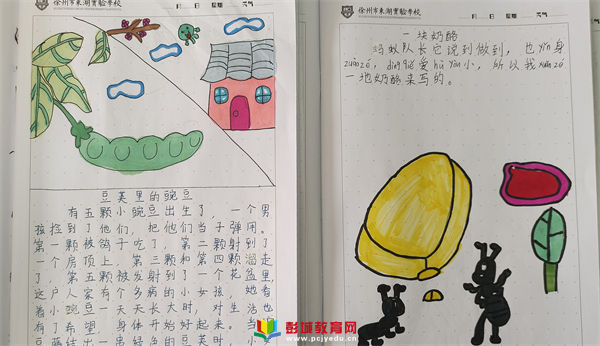 徐州市东湖实验学校
月 日 星期 天气
豆荚里的豌豆
有五颗小豌豆出生了，一个男
孩捡到了他们，把他们当子弹用，
第一颗被鸽子吃了，第二颗射到了
一个房顶上，第三颗和第四颗溜走
了，第五颗被发射到了一个花盆里，
这户人家有个多病的小女孩，她看
着小豌豆一天天长大时，对生活也
有了希望，身体开始好起来。当
豆藤结出一串绿色的豆荚时，小
徐州市东湖实验学校
月 日 星期 天气
一块奶酪
蚂蚁队长它说到做到，也yǐn身
zuò zé，爱hù yòu小，所以我
一块奶酪来写的。
彭城教育网
www.pcjyedu.cn